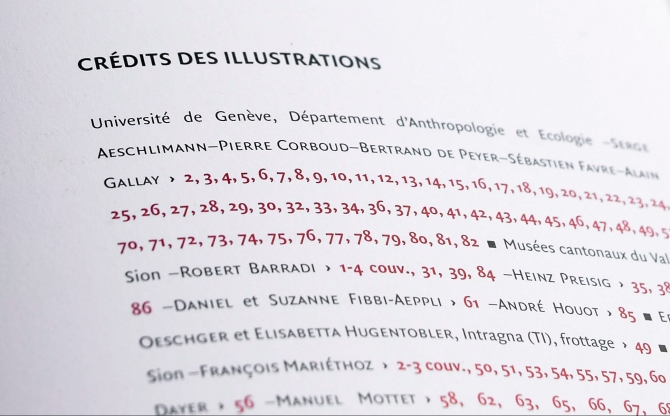 CRÉDITS DES ILLUSTRATIONS
Université de Genève, Département d'Anthropologie et Ecologie –SERGE
AESCHLIMANN–PIERRE CORBOUD–BERTRAND DE PEYER–SÉBASTIEN FAVRE–ALAIN
GALLAY › 2, 3, 4, 5, 6, 7, 8, 9, 10, 11, 12, 13, 14, 15, 16, 17, 18, 19, 20, 21, 22, 23, 24,
25, 26, 27, 28, 29, 30, 32, 33, 34, 36, 37, 40, 41, 42, 43, 44, 45, 46, 47, 48, 49,
70, 71, 72, 73, 74, 75, 76, 77, 78, 79, 80, 81, 82 ■ Musées cantonaux du Val
Sion –ROBERT BARRADI › 1-4 couv., 31, 39, 84 –HEINZ PREISIG › 35, 38
86 –DANIEL et SUZANNE FIBBI-AEPPLI › 61 –ANDRÉ HOUOT › 85 ■
OESCHGER et ELISABETTA HUGENTOBLER, Intragna (TI), frottage › 49 ■
Sion –FRANÇOIS MARIÉTHOZ › 2-3 couv., 50, 51, 53, 54, 55, 57, 59, 60
DAYER › 56 –MANUEL MOTTET › 58, 62, 63, 65, 66, 67, 68